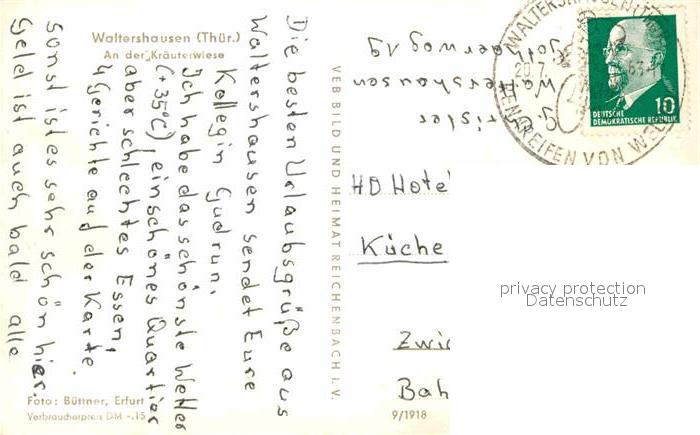 Waltershausen (Thür.)
An der Kräuterwiese
Die besten Urlaubsgrüße aus
Waltershausen sendet Eure
Kollegin Gudrun.
Ich habe das schönste Wetter
(+35°C) ein schönes Quartier
aber schlechtes Essen,
4 Gerichte auf der Karte
Sonst ist es sehr schön hier.
Geld ist auch bald alle
Foto: Büttner, Erfurt
Verbraucherpreis DM -.15
VEB BILD UND HEIMAT REICHENBACH I. V.
G.
Waltershausen
19
WALTERSHAUSEN
20.7.
REIFEN VON
DEUTSCHE
DEMOKRATISCHE REPUBLIK
10
HO Hotel
Küche
privacy protection
Datenschutz
Zwi
Bah
9/1918